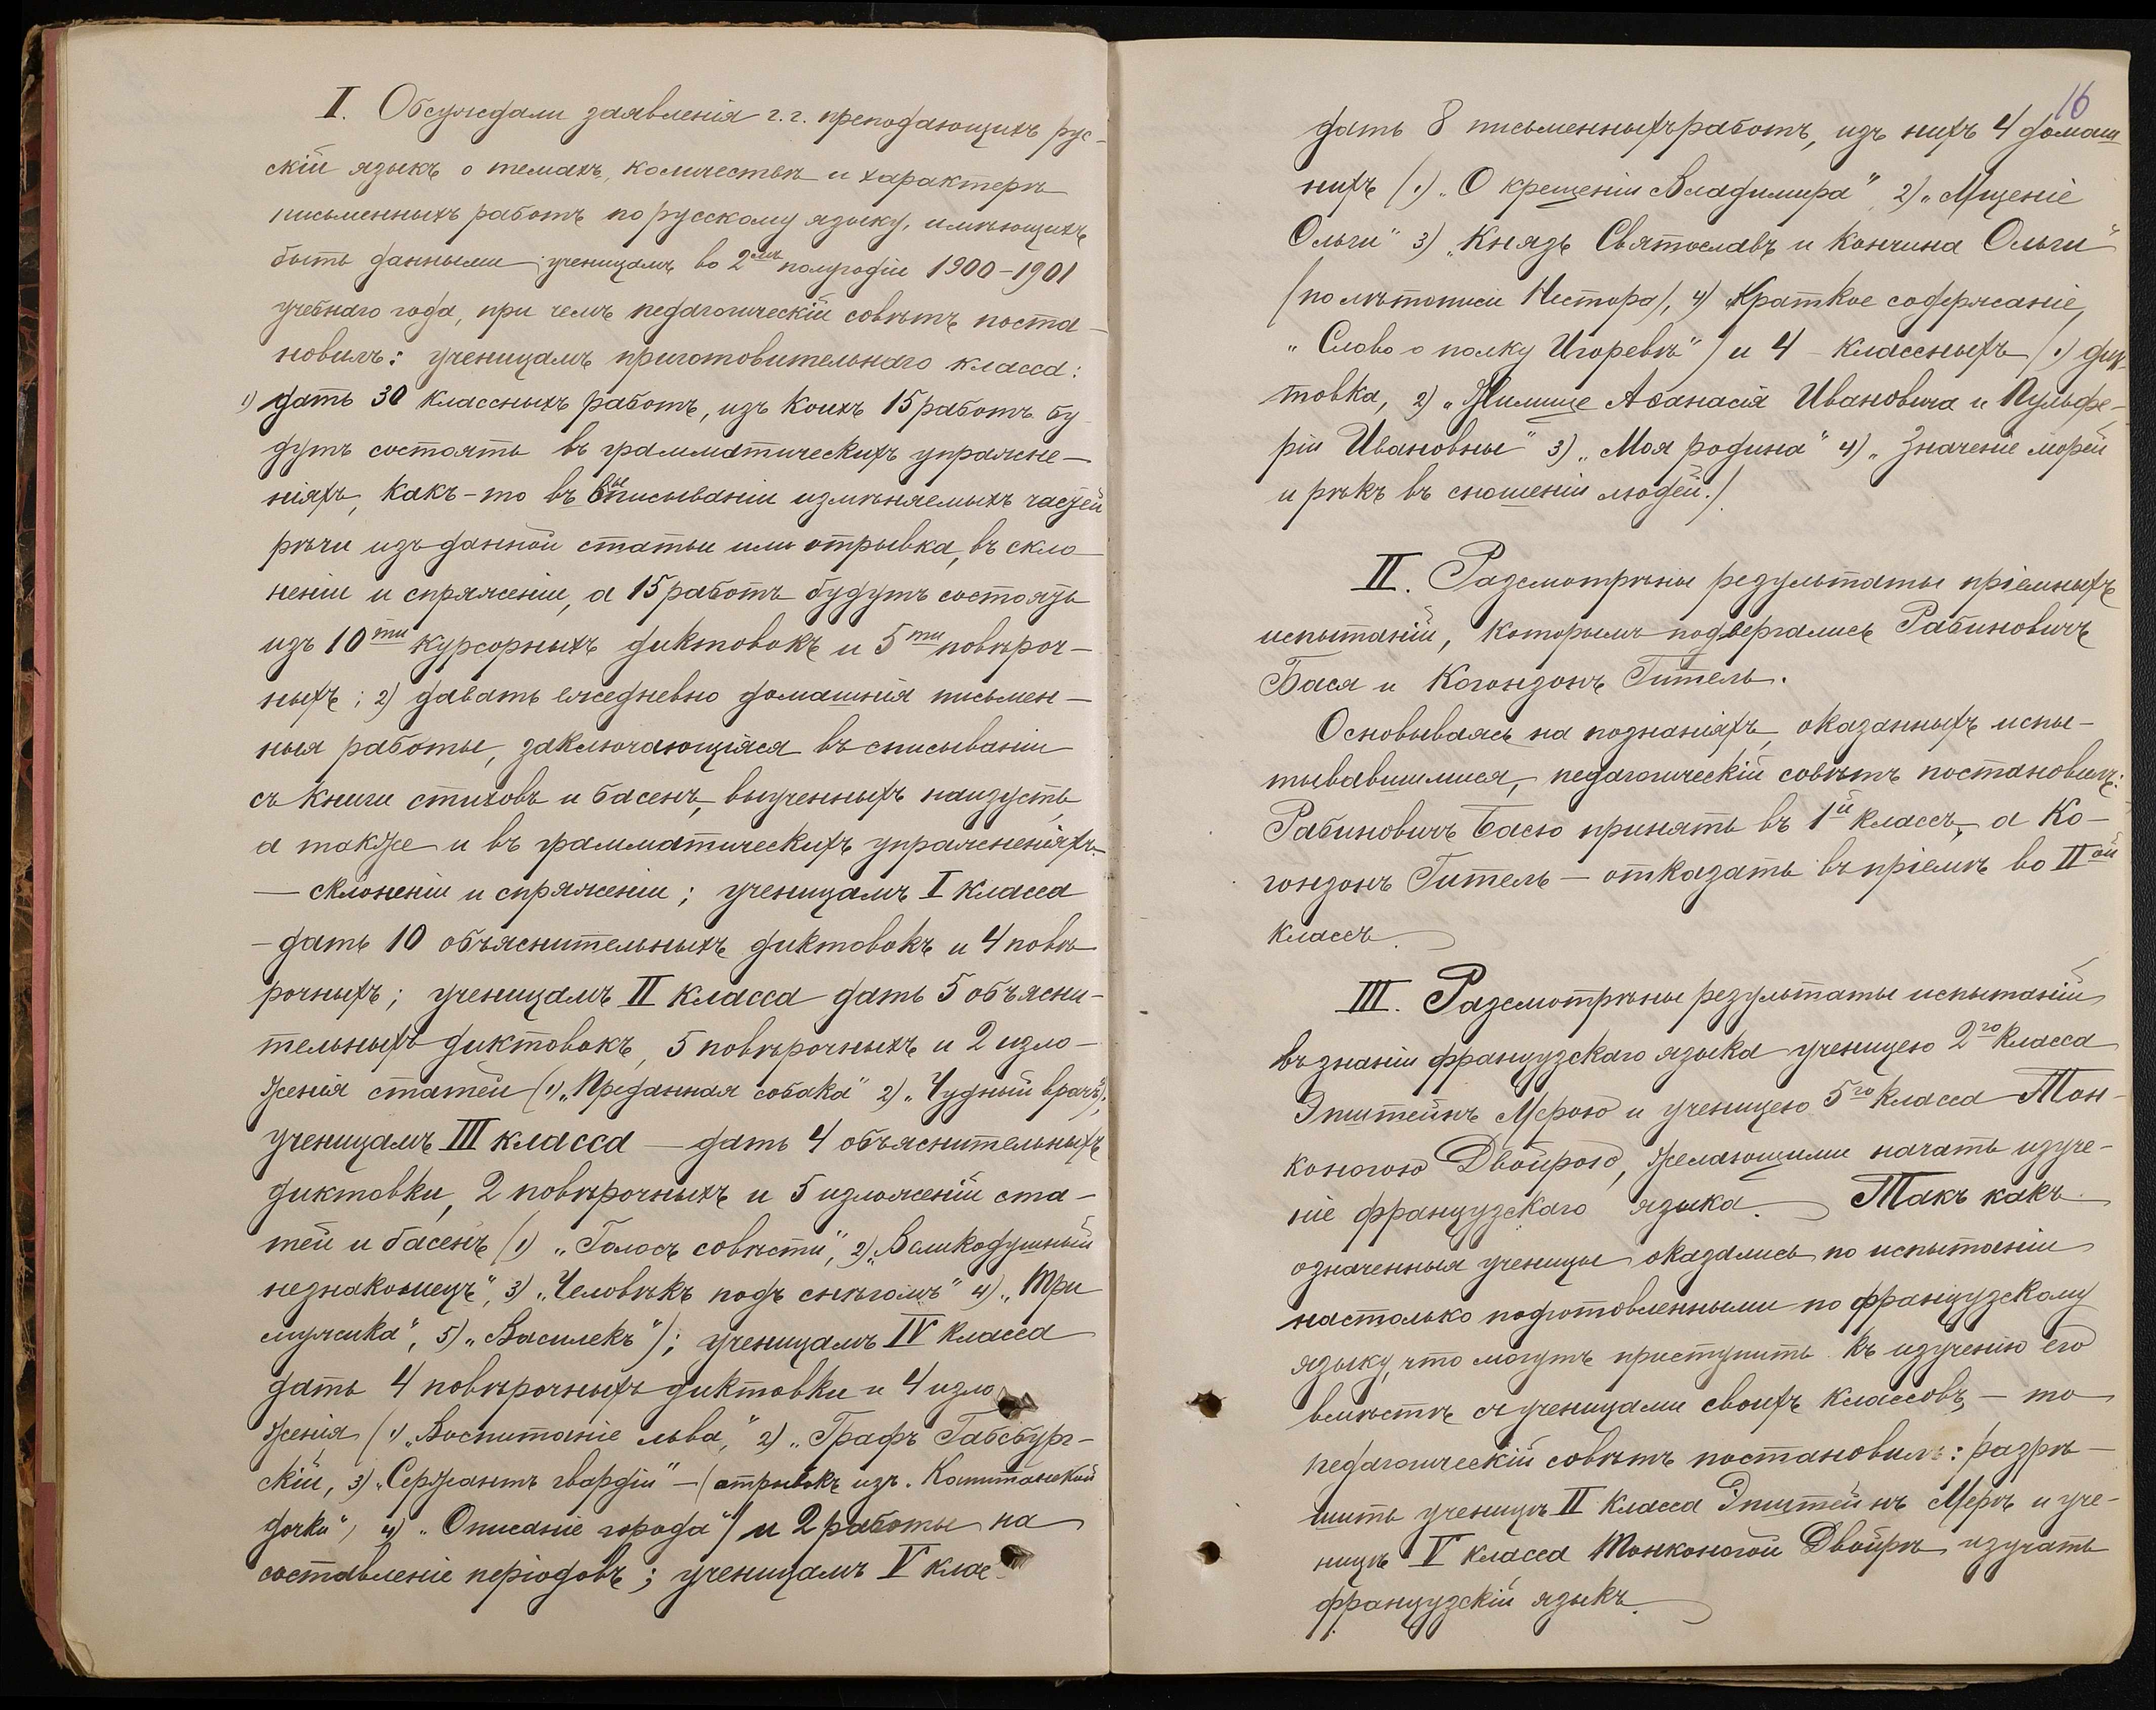 I. Обсуждали заявленія г.г. преподающихъ рус-
скій языкъ о темахъ, количествѣ и характерѣ
письменныхъ работъ по русскому языку, имѣющихъ
быть данными ученицамъ во 2омъ полугодіи 1900-1901
учебнаго года, при чемъ педагогическій совѣтъ поста-
новилъ: ученицамъ приготовительнаго класса:
1) дать 30 классныхъ работъ, изъ коихъ 15 работъ бу
дутъ состоять въ грамматическихъ упражне-
ніяхъ, какъ-то въ выписываніи измѣняемыхъ частей
рѣчи изъ данной статьи или отрывка, въ скло-
неніи и спряженіи, а 15 работъ будутъ состоять
изъ 10ти курсорныхъ диктовокъ и 5ти повѣроч-
ныхъ; 2) давать ежедневно домашнія письмен-
ныя работы, заключающіяся въ списываніи
съ книги стиховъ и басенъ, выученныхъ наизусть,
а также и въ грамматическихъ упражненіяхъ
— склоненіи и спряженіи; ученицамъ I класса
- дать 10 объяснительныхъ диктовокъ и 4 повѣ
рочныхъ; ученицамъ II класса дать 5 объясни-
тельныхъ диктовокъ, 5 повѣрочныхъ и 2 изло-
женія статей (1) „Преданная собака" 2) „Чудный врачъ");
ученицамъ III класса — дать 4 объяснительныхъ
диктовки, 2 повѣрочныхъ и 5 изложеній ста-
тей и басенъ (1) „Голосъ совѣсти", 2) „Великодушный
незнакомецъ", 3) „Человѣкъ подъ снѣгомъ" 4) „Три
мужика", 5) „Василекъ"); ученицамъ IV класса
дать 4 повѣрочныхъ диктовки и 4 изло
женія (1) „Воспитаніе льва", 2) „Графъ Габсбург-
скій, 3) „Сержантъ гвардіи" — (отрывокъ изъ „Капитанской
дочки", 4) „Описаніе города") и 2 работы на
составленіе періодовъ; ученицамъ V клас
16
дать 8 письменныхъ работъ, изъ нихъ 4 домаш
нихъ (1) „О крещеніи Владимира", 2) „Мщеніе
Ольги" 3) „Князь Святославъ и кончина Ольги"
(по лѣтописи Нестора), 4) Краткое содержаніе
„Слово о полку Игоревѣ") и 4 - классныхъ (1) дик-
товка, 2) „Жилище Аѳанасія Ивановича и Пульхе-
ріи Ивановны" 3) „Моя родина" 4) „Значеніе морей
и рѣкъ въ сношеніи людей.)
II. Разсмотрѣны результаты пріемныхъ
испытаній, которымъ подвергались Рабиновичъ
Бася и Когонзонъ Гитель.
Основываясь на познаніяхъ, оказанныхъ испы-
тывавшимися, педагогическій совѣтъ постановилъ:
Рабиновичъ Басю принять въ 1й классъ, а Ко-
гонзонъ Гитель — отказать въ пріемѣ во IIой
классъ.
III. Разсмотрѣны результаты испытаній
въ знаніи французскаго языка ученицею 2го класса
Эпштейнъ Мерою и ученицею 5го класса Тон-
коногою Двойрою, желающими начать изуче-
ніе французскаго языка. Такъ какъ
означенныя ученицы оказались по испытаніи
настолько подготовленными по французскому
языку, что могутъ приступить къ изученію его
вмѣстѣ съ ученицами своихъ классовъ, — то
педагогическій совѣтъ постановилъ: разрѣ-
шить ученицѣ II класса Эпштейнъ Мерѣ и уче-
ницѣ V класса Тонконогой Двойрѣ изучать
французскій языкъ.